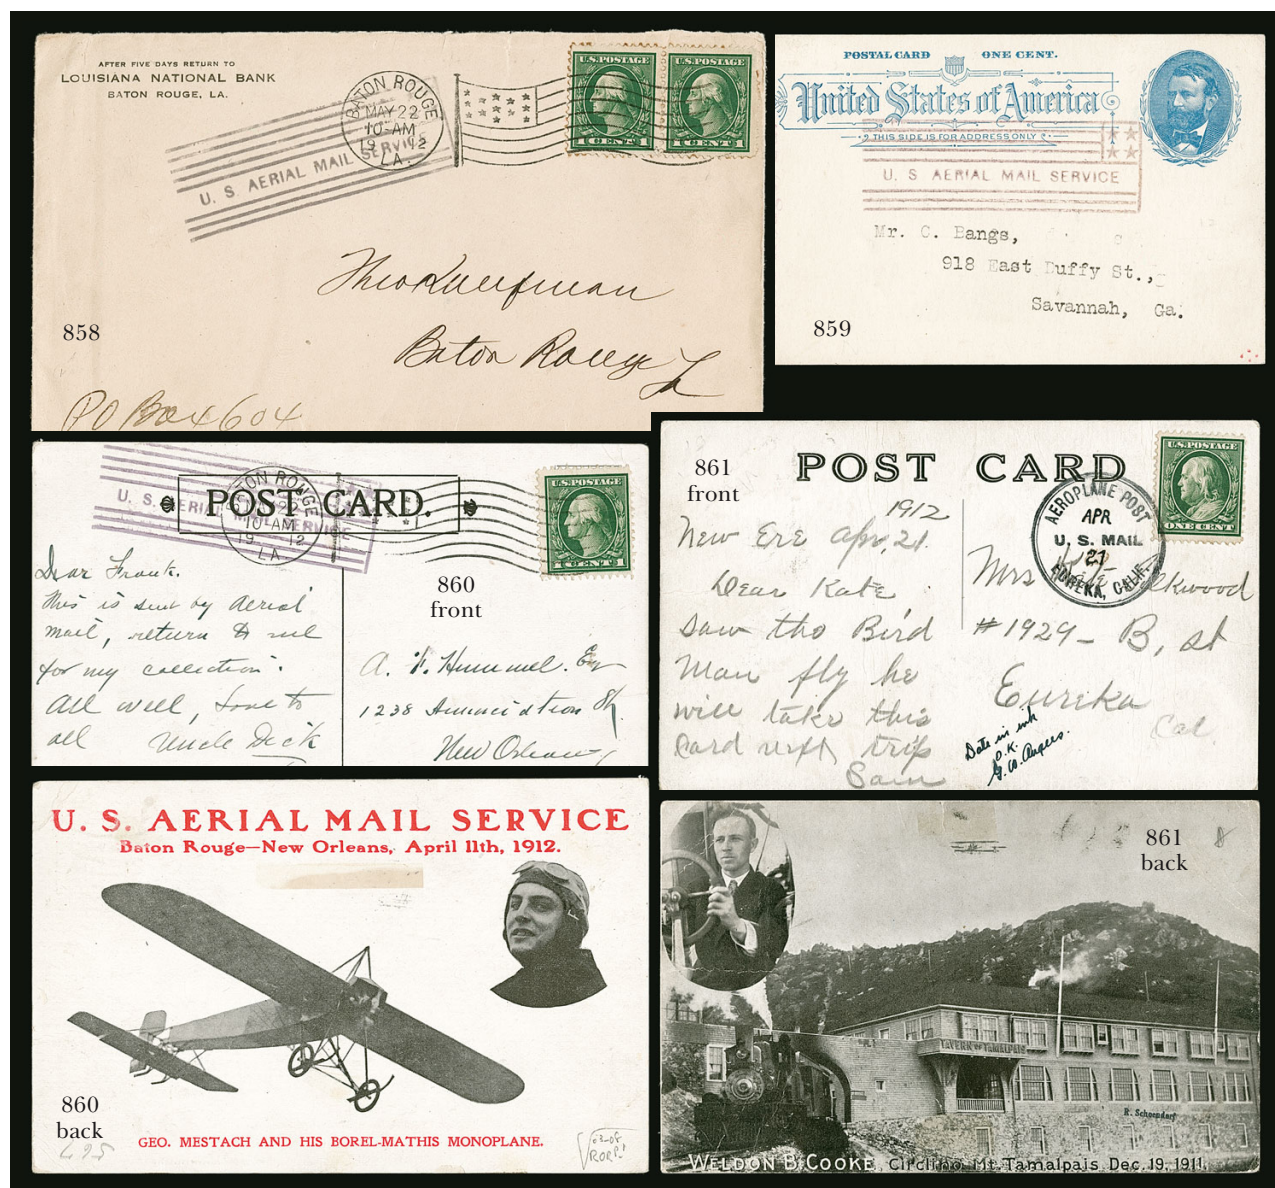 AFTER FIVE DAYS RETURN TO
LOUISIANA NATIONAL BANK
BATON ROUGE, LA.
BATON ROUGE
MAY 22
10-AM
1912
LA.
U. S AERIAL MAIL SERVICE
U.S. POSTAGE
1 CENT 1
U.S. POSTAGE
1 CENT 1
Theo Kauffman
Baton Rouge La
PO Box 604
858
POSTAL CARD ONE CENT.
United States of America
THIS SIDE IS FOR ADDRESS ONLY
U. S AERIAL MAIL SERVICE
Mr. C. Bangs,
918 East Duffy St.,
Savannah, Ga.
859
U. S. AERIAL MAIL SERVICE
BATON ROUGE
22
10-AM
19 12
LA.
POST CARD.
U.S. POSTAGE
1 CENT 1
860
front
Dear Frank.
This is sent by Aerial
mail, return to me
for my collection.
All well, Love to
all Uncle Dick
A. F. Hummel. Esq
1238
New Orleans
861
front
POST CARD
U.S. POSTAGE
ONE CENT
AEROPLANE POST
APR
U. S. MAIL
21
EUREKA, CALIF.
1912
New Ere Apr, 21.
Dear Kate
Saw the Bird
Man fly he
will take this
Card next trip
Sam
Mrs
#1929- B, st
Eureka
Cal.
Date in ink
O.K.
G. W. Angers.
U. S. AERIAL MAIL SERVICE
Baton Rouge—New Orleans, April 11th, 1912.
860
back
GEO. MESTACH AND HIS BOREL-MATHIS MONOPLANE.
861
back
TAVERN OF TAMALPAIS
R. Schoendorf
WELDON B. COOKE Circling Mt. Tamalpais Dec. 19, 1911.